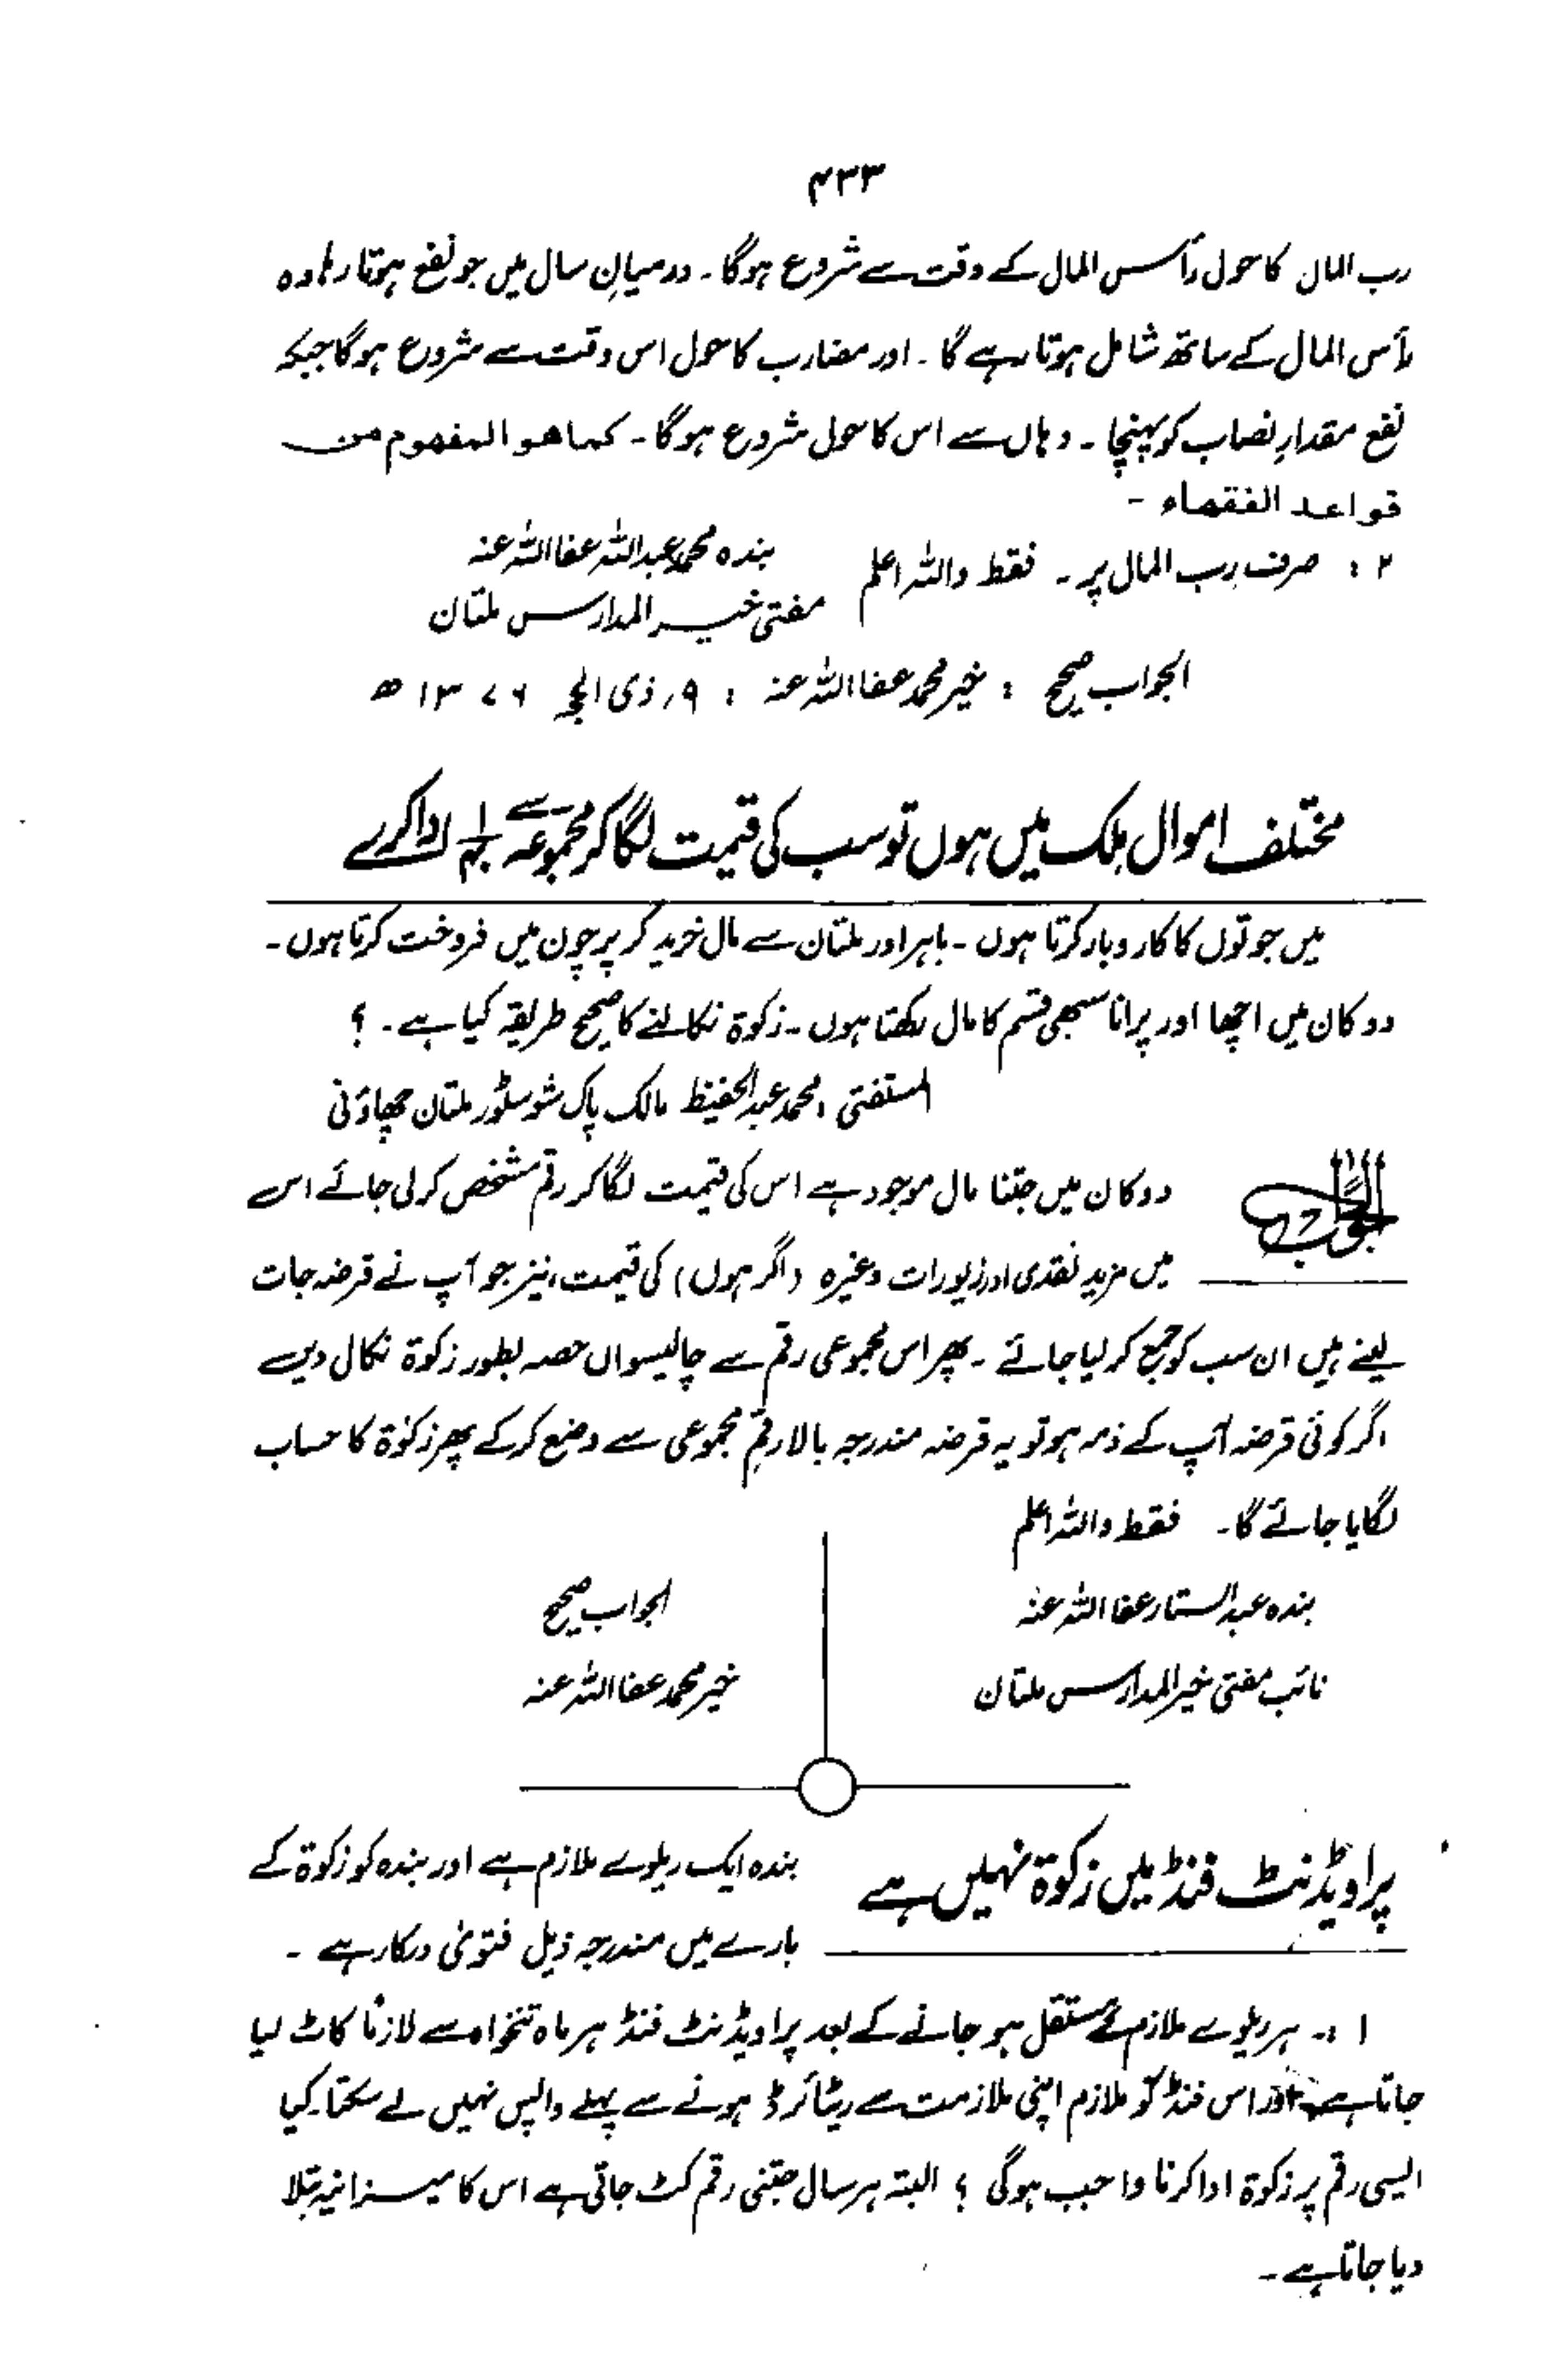 ۴۳۳
رب المال کا حول رأس المال کے وقت سے شروع ہوگا۔ درمیانِ سال میں جو نفع ہوتا رہا وہ
رأس المال کے ساتھ شامل ہوتا رہے گا۔ اور مضارب کا حول اس وقت سے شروع ہوگا جبکہ
نفع مقدارِ نصاب کو پہنچا۔ وہاں سے اس کا حول شروع ہوگا۔ کما ھو المفھوم من
قواعد الفقھاء۔
۲: صرف رب المال پر۔ فقط واللہ اعلم
بندہ محمد عبداللہ عفا اللہ عنہ
مفتی خیر المدارس ملتان
الجواب صحیح : خیر محمد عفا اللہ عنہ : ۹؍ ذی الحجہ ۱۳۷۶ھ
مختلف اموال ملک میں ہوں تو سب کی قیمت لگا کر مجموعہ سے ۱/۴۰ ادا کرے
میں جوتوں کا کاروبار کرتا ہوں۔ باہر اور ملتان سے مال خرید کر پرچون میں فروخت کرتا ہوں۔
دوکان میں اچھا اور پرانا سبھی قسم کا مال رکھتا ہوں۔ زکوۃ نکالنے کا صحیح طریقہ کیا ہے۔ ؟
المستفتی ، محمد عبدالحفیظ مالک پاک شو سٹور ملتان چھاؤنی
الجواب
دوکان میں جتنا مال موجود ہے اس کی قیمت لگا کر رقم مشخص کر لی جائے اس
میں مزید نقدی اور زیورات وغیرہ (اگر ہوں) کی قیمت، نیز جو آپ نے قرضہ جات
لینے ہیں ان سب کو جمع کر لیا جائے۔ پھر اس مجموعی رقم سے چالیسواں حصہ بطور زکوۃ نکال دیں
اگر کوئی قرضہ آپ کے ذمہ ہو تو یہ قرضہ مندرجہ بالا رقم مجموعی سے وضع کر کے پھر زکوٰۃ کا حساب
لگایا جائے گا۔ فقط واللہ اعلم
بندہ عبدالستار عفا اللہ عنہ
نائب مفتی خیر المدارس ملتان
الجواب صحیح
خیر محمد عفا اللہ عنہ
پراویڈنٹ فنڈ میں زکوۃ نہیں ہے
بندہ ایک ریلوے ملازم ہے اور بندہ کو زکوۃ کے
بارے میں مندرجہ ذیل فتویٰ درکار ہے۔
۱ :۔ ہر ریلوے ملازم کے مستقل ہو جانے کے بعد پراویڈنٹ فنڈ ہر ماہ تنخواہ سے لازماً کاٹ لیا
جاتا ہے اور اس فنڈ کو ملازم اپنی ملازمت سے ریٹائرڈ ہونے سے پہلے واپس نہیں لے سکتا۔ کیا
ایسی رقم پر زکوۃ ادا کرنا واجب ہوگی ؟ البتہ ہر سال جتنی رقم کٹ جاتی ہے اس کا میزانیہ بتلا
دیا جاتا ہے۔